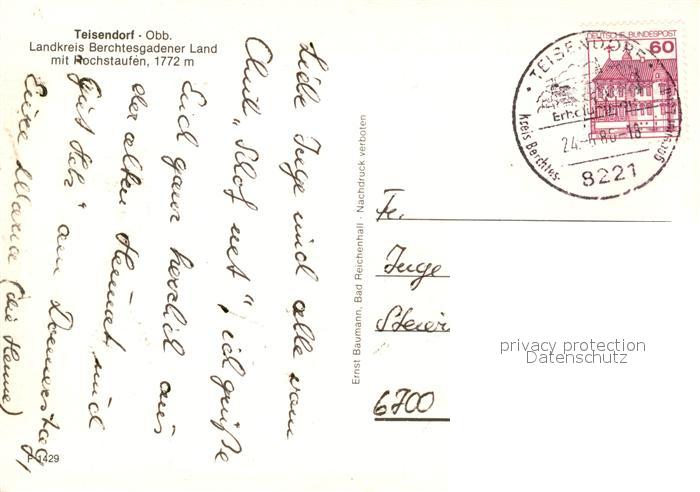 Teisendorf · Obb.
Landkreis Berchtesgadener Land
mit Hochstaufen, 1772 m
Liebe Inge und alle vom
Club „Schof net“, ich grüße
Euch ganz herzlich aus
der alten Heimat und
„Gut Holz“ am Donnerstag,
Eure (die Henne)
F 1429
Ernst Baumann, Bad Reichenhall · Nachdruck verboten
DEUTSCHE BUNDESPOST
60
TEISENDORF
Kreis Berchtes
8221
Fr.
Inge
6700
privacy protection
Datenschutz